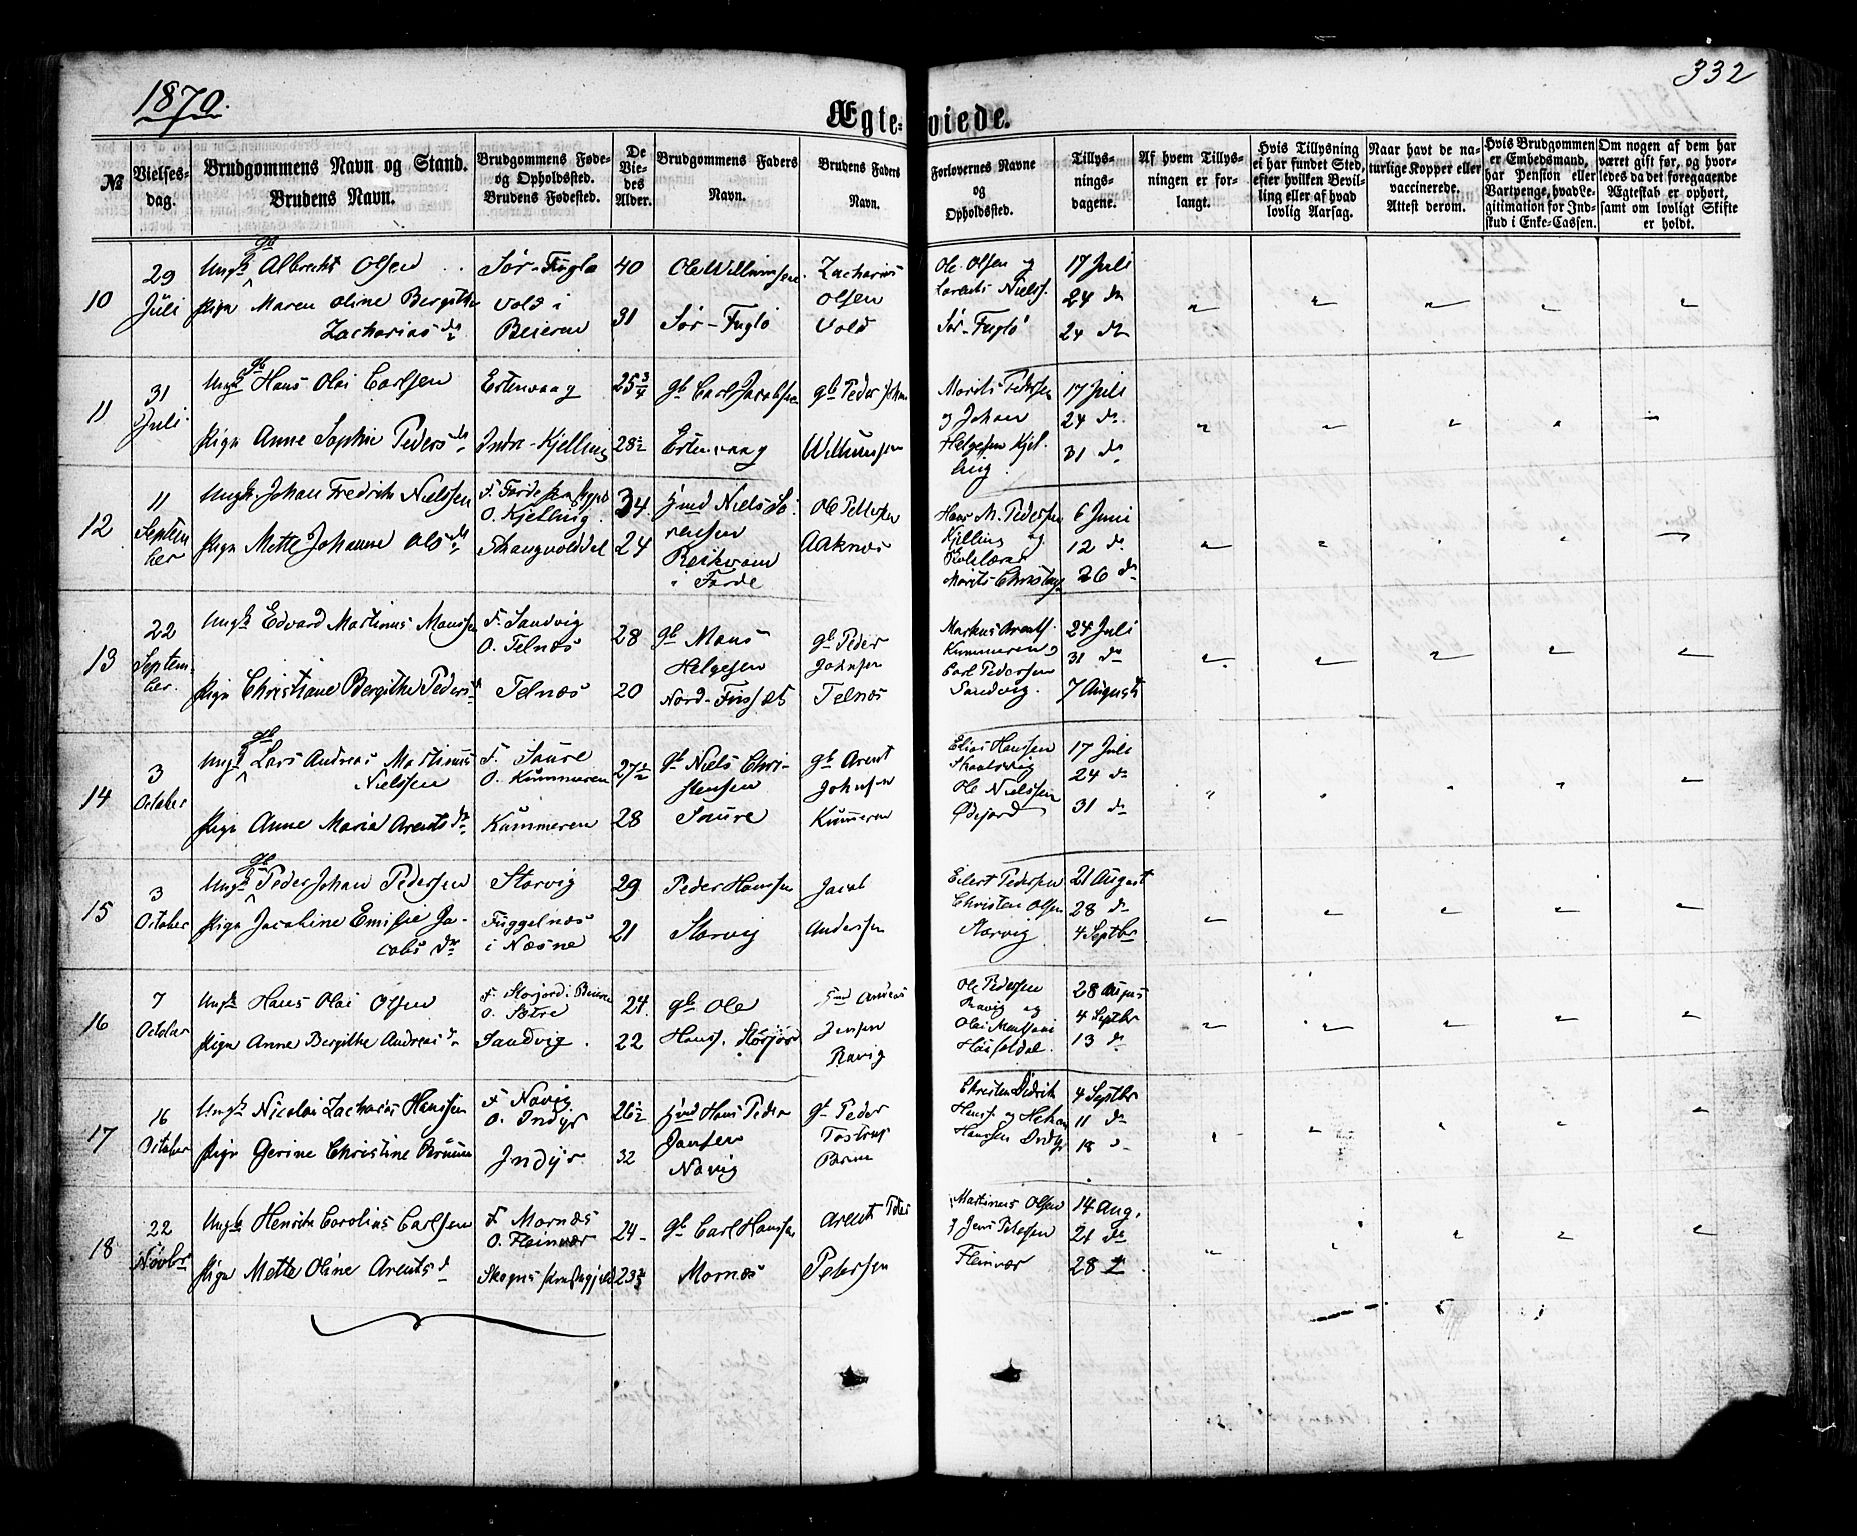 1870.
332
Ægte-
viede.
№
Vielses-
dag.
Brudgommens Navn og Stand.
Brudens Navn.
Brudgommens Føde-
og Opholdssted.
Brudens Fødested.
De
Vie-
des
Alder.
Brudgommens Faders
Navn.
Brudens Faders
Navn.
Forlovernes Navne
og
Opholdssted.
Tillys-
nings-
dagene.
Af hvem Tillys-
ningen er for-
langt.
Hvis Tillysning
ei har fundet Sted,
efter hvilken Bevil-
ling eller af hvad
lovlig Aarsag.
Naar havt de na-
turlige Kopper eller
vaccinerede.
Attest derom.
Hvis Brudgommen
er Embedsmand,
har Pension eller
Vartpenge, hvad Le-
gitimation for Ind-
skud i Enke-Cassen.
Om nogen af dem har
været gift før, og hvor-
ledes da det foregaaende
Ægteskab er ophørt,
samt om lovligt Skifte
er holdt.
10
29
Juli
Ungk gb Albrecht Olsen
Pige Maren Oline Bergithe
Zacharias dr
Sør-Fuglø
Vold i
Beieren
40
31
Ole Willumsen
Sør-Fuglø
Zacharias
Olsen
Vold
Ole Olsen og
Lorents Nielss.
Sør-Fuglø
17 Juli
24 do
24 do
11
31
Juli
Ungk gb Hans Olai Carlsen
Pige Anne Sophie Peders dr
Estenvaag
Indre-Kjelling
25 3/4
28 1/2
gb Carl Jacobsen
Estenvaag
gb Peder Johan
Willumsen
Morits Pedersen
og Johan
Helgesen Kjel-
ling
17 Juli
24 do
31 do
12
11
Septem
ber
Ungk. Johan Fredrik Nielssen
Pige Mette Johanne Ols dr
F. Førde
O. Kjelling
34
24
Niels
i Førde
Ole Pettersen
Aaknes
Hans M. Pedersen
Kjelling og
6 Juni
12 do
26 do
13
22
Septem
ber.
Ungk Edvard Martinus Monssen
Pige Christiane Bergithe Peders dr
F. Sandvig
O. Telnæs
Telnæs
28
20
gb Mons
Helgesen
gb Peder
Johnsen
Telnæs
Markus Arents.
Kummeren og
Carl Pedersen
Sandvig.
24 Juli
31 do
7 August
14
3
October
Ungk gb Lars Andreas Martinus
Nielssen
Pige Anne Maria Arents dr
F. Saure
O. Kummeren
Kummeren
27 1/2
28
gb Niels Chri-
stensen
Saure
gb Arent
Johnsen
Kummeren
Elias Hanssen
Ole Nielssen
17 Juli
24 do
31 do
15
3
October
Ungk gb Peder Johan Pedersen
Pige Jacobine Emilie Ja-
cobs dr
Storvig
i Næsne
29
21
Peder Hanssen
Storvig
Jacob
Andersen
Eilert Pedersen
Christen Olsen
Storvig
21 August
28 do
4 Septbr
16
7
October
Ungk Hans Olai Olsen
Pige Anne Bergithe Andreas dr
F. Storjord i Beieren
Sandvig
24
22
gb Ole
Hans.
Andreas
Jensen
Ravig
Ole Pedersen
Ravig og
28 August
4 Septbr
13 do
17
16
October
Ungk Nicolai Zacharias Hanssen
Pige Gerine Christine
F Novig
O. Indyr
Indyr
26 1/2
32
Hans Peder
Jansen
Novig
Peder
Tostrup
4 Septbr
11 do
18
18
22
Novbr
Ungk Henrik Carolius Carlsen
Pige Mette Oline Arents dr
F Mornæs
O. Fleinvær
Skogns Præstegjeld
24
gb Carl Hanssen
Mornæs
Arent Peder
Petersen
Martinus Olsen
og Jens Pedersen
Fleinvær
14 Aug.
21 do
28